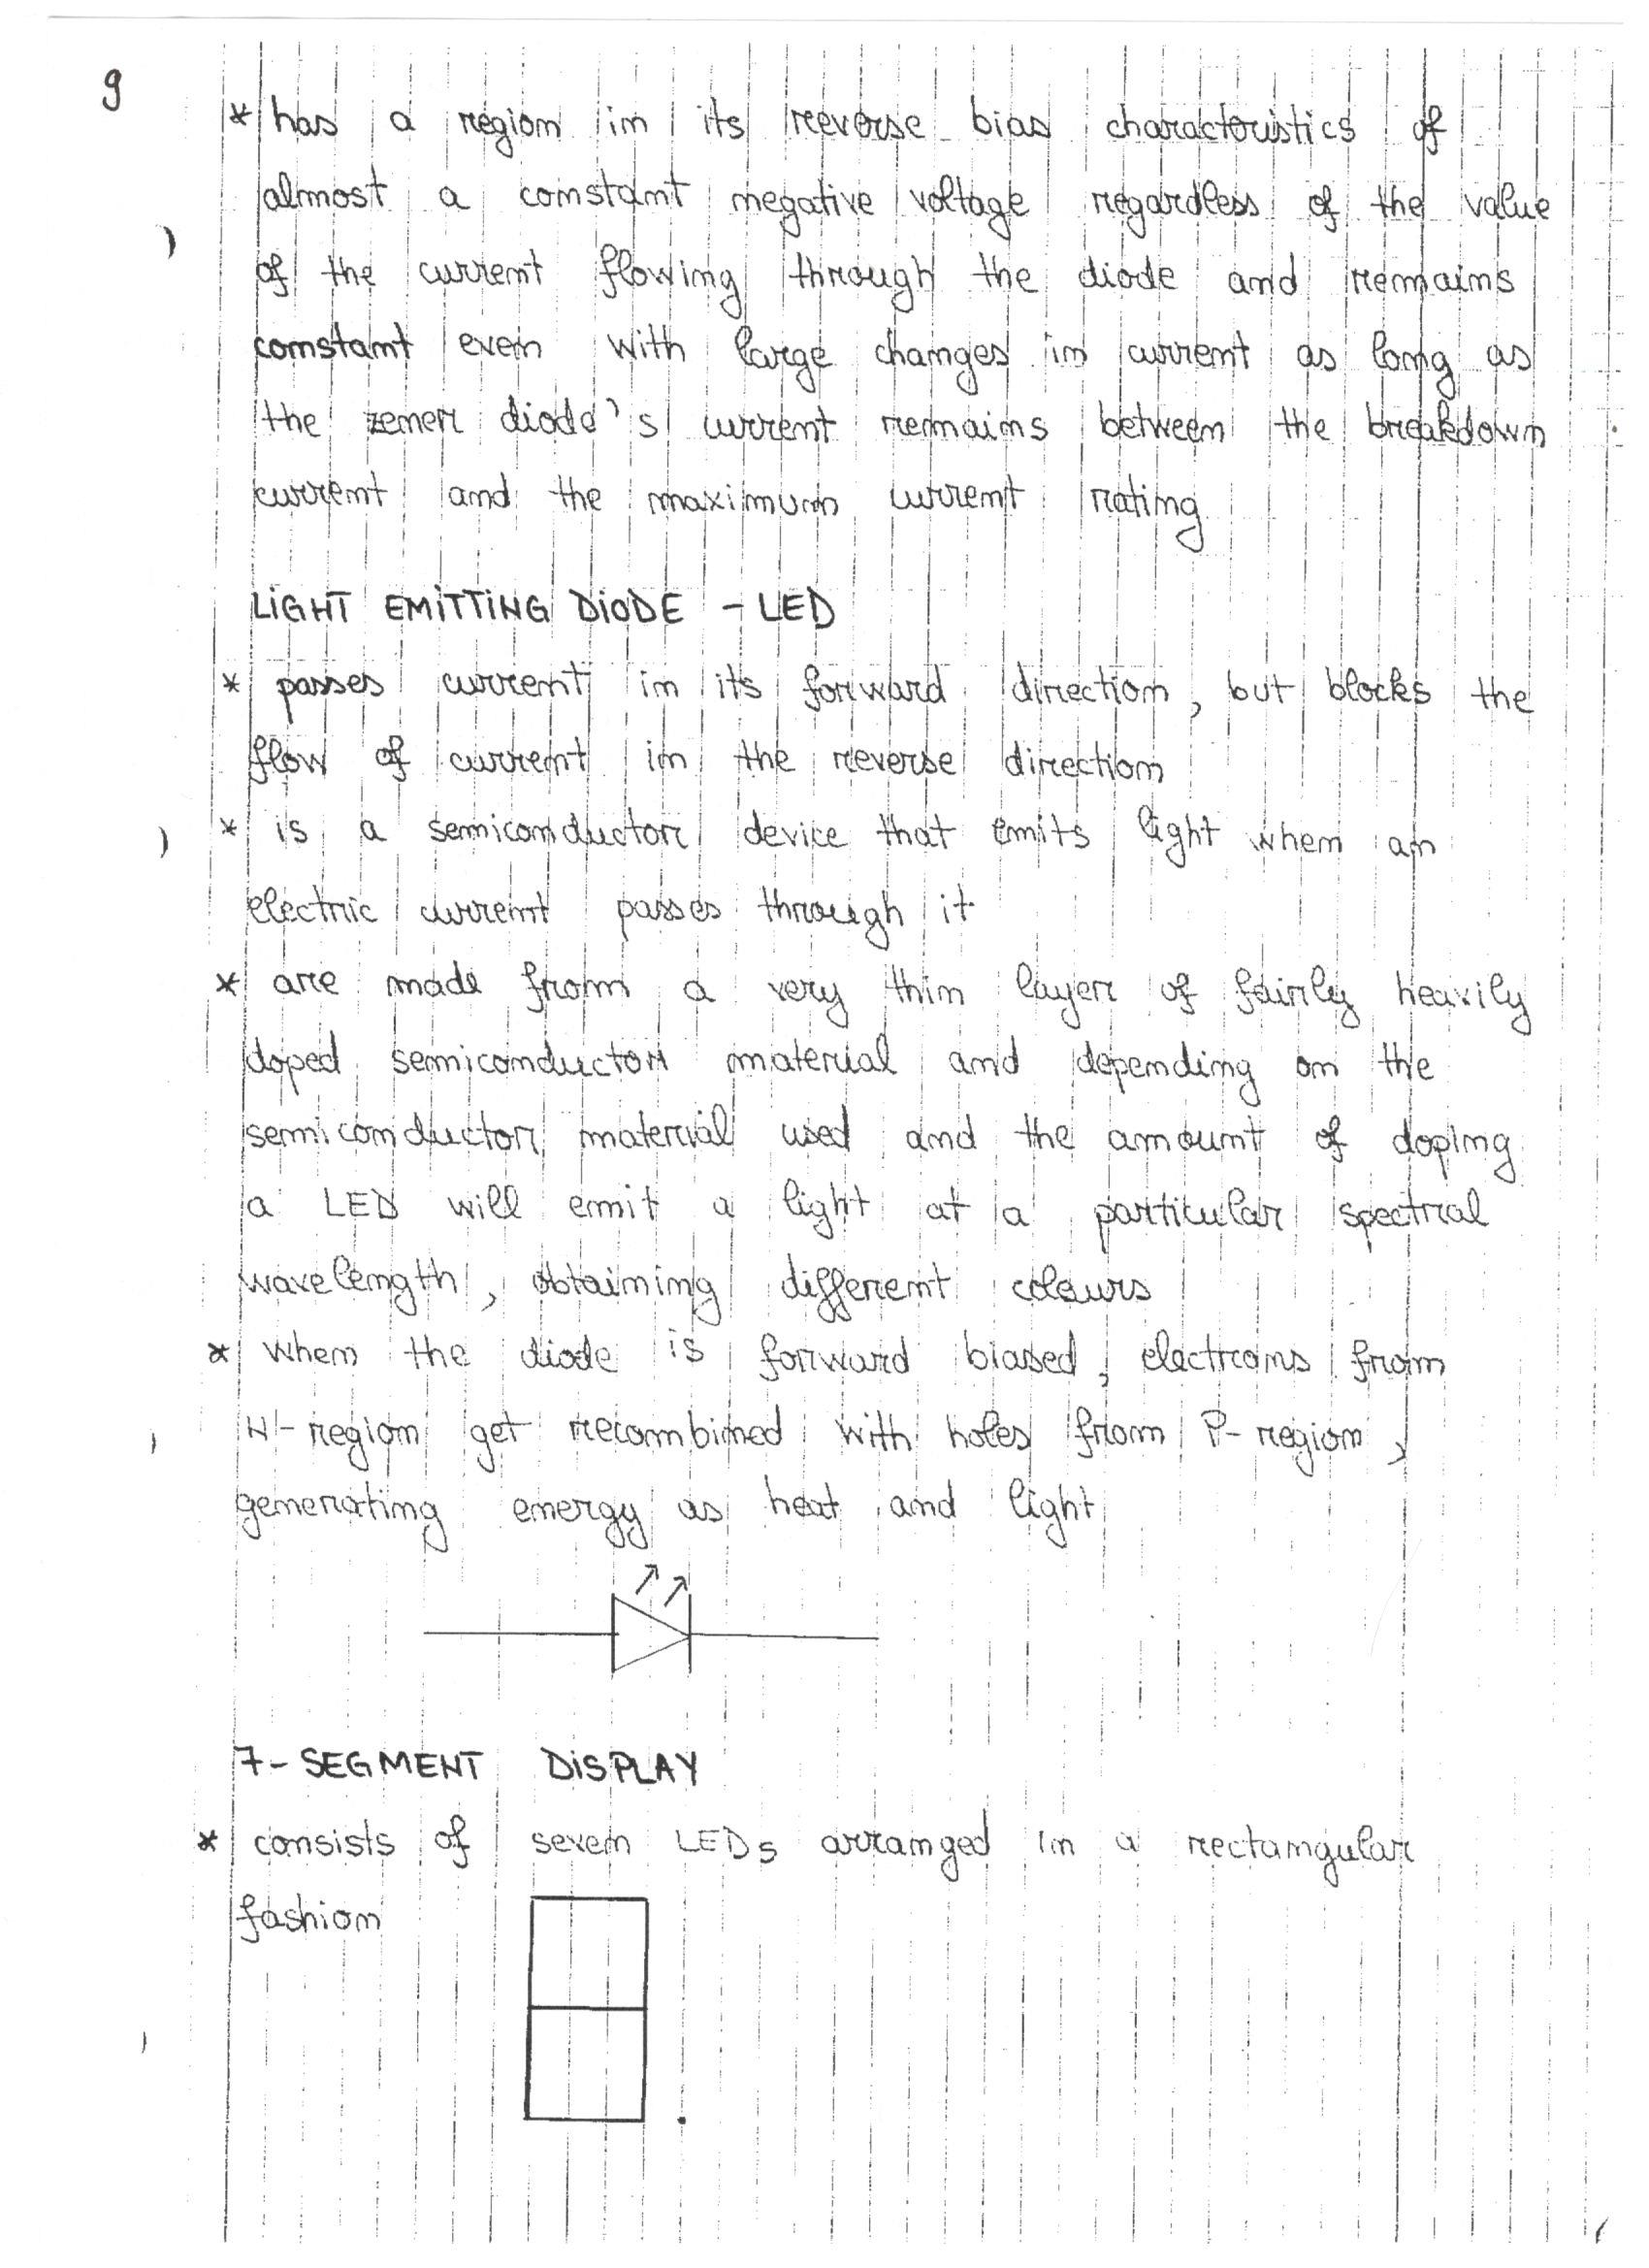 9
* has a region in its reverse bias characteristics of
almost a constant negative voltage regardless of the value
of the current flowing through the diode and remains
constant even with large changes in current as long as
the zener diode's current remains between the breakdown
current and the maximum current rating
LIGHT EMITTING DIODE - LED
* passes current in its forward direction, but blocks the
flow of current in the reverse direction
* is a semiconductor device that emits light when an
electric current passes through it
* are made from a very thin layer of fairly heavily
doped semiconductor material and depending on the
semiconductor material used and the amount of doping
a LED will emit a light at a particular spectral
wavelength, obtaining different colours
* when the diode is forward biased, electrons from
N-region get recombined with holes from P-region,
generating energy as heat and light
7-SEGMENT DISPLAY
* consists of seven LEDs arranged in a rectangular
fashion